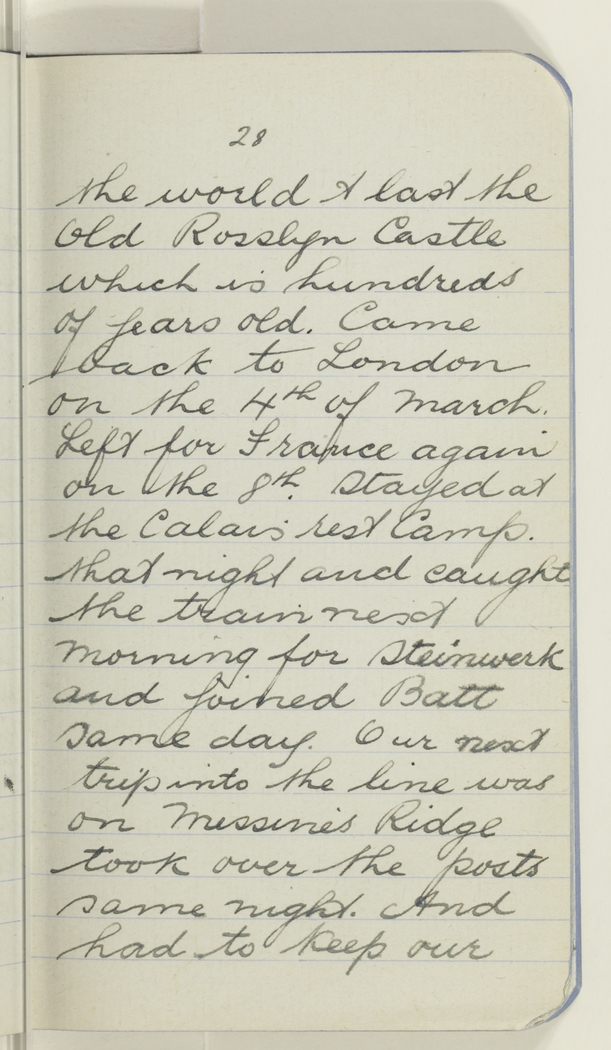 28
the world & last the
Old Rosslyn Castle
which is hundreds
of years old. Came
back to London
on the 4th of March.
Left for France again
on the 8th. Stayed at
the Calais rest Camp.
that night and caught
the train next
morning for Steinwerk
and joined Batt
same day. Our next
trip into the line was
on Messines Ridge
took over the posts
same night. And
had to keep our